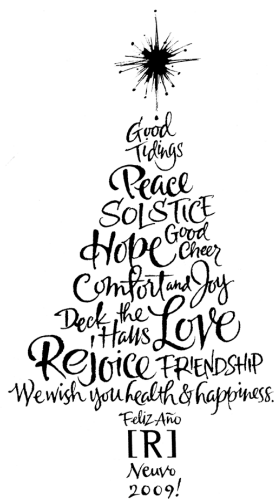 Good
Tidings
Peace
SOLSTICE
Hope Good Cheer
Comfort and Joy
Deck the Halls Love
Rejoice FRIENDSHIP
We wish you health & happiness.
Feliz Año
[R]
Neuvo
2009!